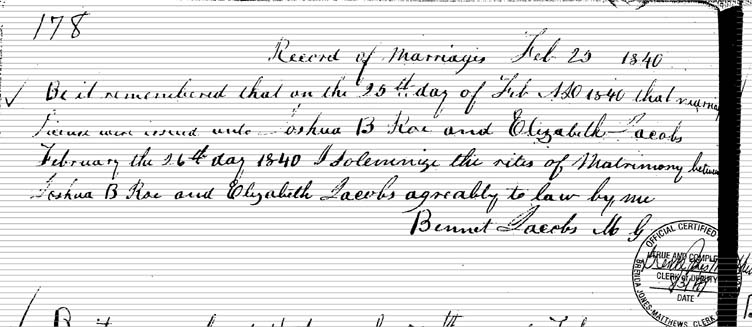 178
Record of Marriages Feb 25 1840
Be it remembered that on the 25th day of Feb AD 1840 that
License were issued unto Joshua B Roe and Elizabeth Jacobs
February the 26th day 1840 I Solemnize the rites of Matrimony between
Joshua B Roe and Elizabeth Jacobs agreably to law by me
Bennet Jacobs M G
OFFICIAL CERTIFIED
TRUE AND COMPLE
CLERK DEPUTY
DATE
BRENDA JONES-MATTHEWS, CLERK
Be it